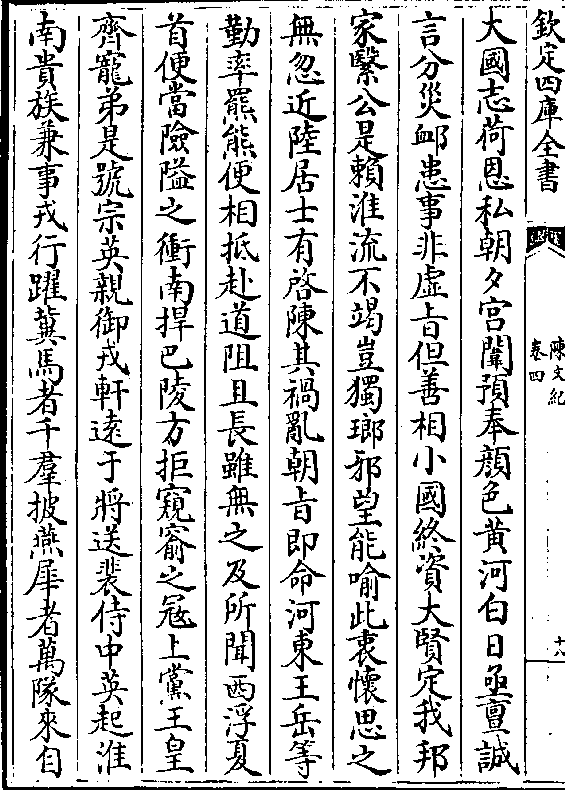 欽定四庫全書
陳文紀
卷四
十八
大國志荷恩私朝夕宮闈預奉顔色黄河白日亟亶誠
言分災䘏患事非虚旨但善相小國終資大賢定我邦
家繫公是賴淮流不竭豈獨瑯邪望能喻此衷懷思之
無忽近陸居士有啓陳其禍亂朝旨即命河東王岳等
勤率羆熊便相抵赴道阻且長雖無之及所聞西浮夏
首便當險隘之衝南捍巴陵方拒窺窬之冦上黨王皇
齊寵弟是號宗英親御戎軒逺于將送裴侍中英起淮
南貴族兼事戎行躍冀馬者千羣披燕犀者萬隊來自